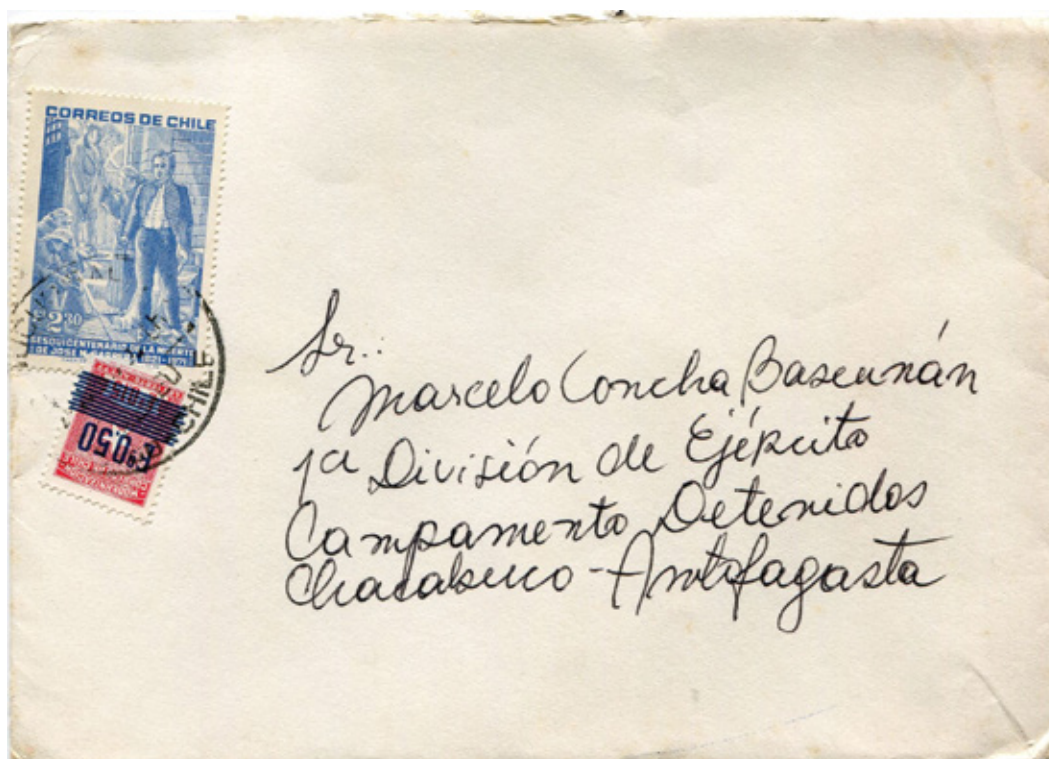 CORREOS DE CHILE
Eº 2 30
SESQUICENTENARIO DE LA MUERTE
DE JOSE M. CARRERA 1821-1971
Eº 0,50
CHILE
Sr.:
Marcelo Concha Bascunán
1a División de Ejército
Campamento Detenidos
Chacabuco - Antofagasta